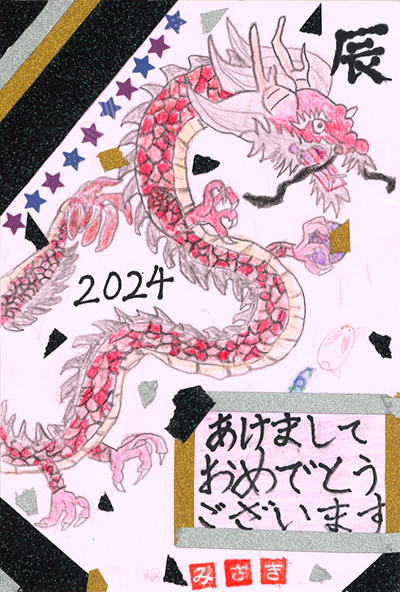 辰
2024
あけまして
おめでとう
ございます
みさき